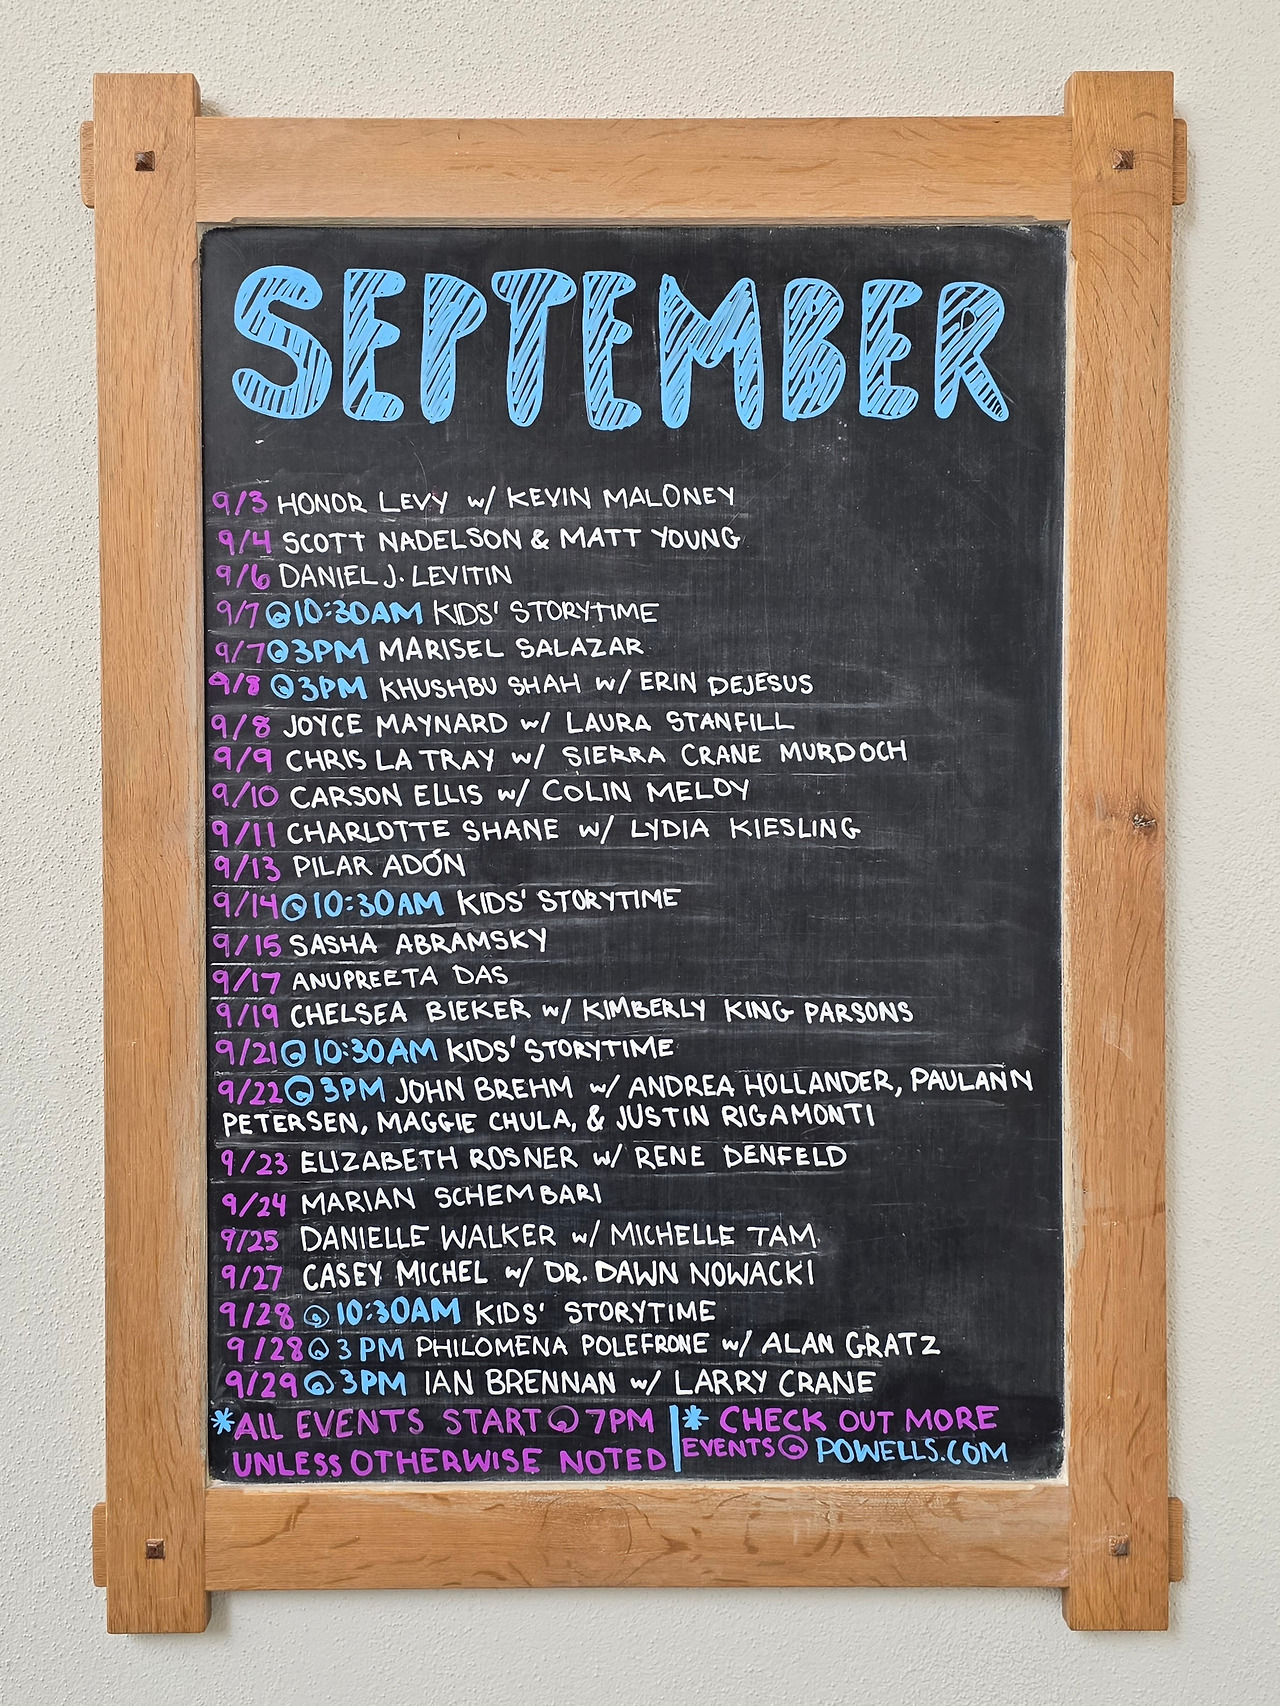 SEPTEMBER
9/3 HONOR LEVY w/ KEVIN MALONEY
9/4 SCOTT NADELSON & MATT YOUNG
9/6 DANIEL J. LEVITIN
9/7 @10:30AM KIDS' STORYTIME
9/7@3PM MARISEL SALAZAR
9/8 @3PM KHUSHBU SHAH w/ ERIN DEJESUS
9/8 JOYCE MAYNARD w/ LAURA STANFILL
9/9 CHRIS LA TRAY w/ SIERRA CRANE MURDOCH
9/10 CARSON ELLIS w/ COLIN MELOY
9/11 CHARLOTTE SHANE w/ LYDIA KIESLING
9/13 PILAR ADÓN
9/14@10:30AM KIDS' STORYTIME
9/15 SASHA ABRAMSKY
9/17 ANUPREETA DAS
9/19 CHELSEA BIEKER w/ KIMBERLY KING PARSONS
9/21@10:30AM KIDS' STORYTIME
9/22@3PM JOHN BREHM w/ ANDREA HOLLANDER, PAULANN
PETERSEN, MAGGIE CHULA, & JUSTIN RIGAMONTI
9/23 ELIZABETH ROSNER w/ RENE DENFELD
9/24 MARIAN SCHEMBARI
9/25 DANIELLE WALKER w/ MICHELLE TAM
9/27 CASEY MICHEL w/ DR. DAWN NOWACKI
9/28 @10:30AM KIDS' STORYTIME
9/28@3PM PHILOMENA POLEFRONE w/ ALAN GRATZ
9/29@3PM IAN BRENNAN w/ LARRY CRANE
*ALL EVENTS START @ 7PM
UNLESS OTHERWISE NOTED
* CHECK OUT MORE
EVENTS@ POWELLS.COM